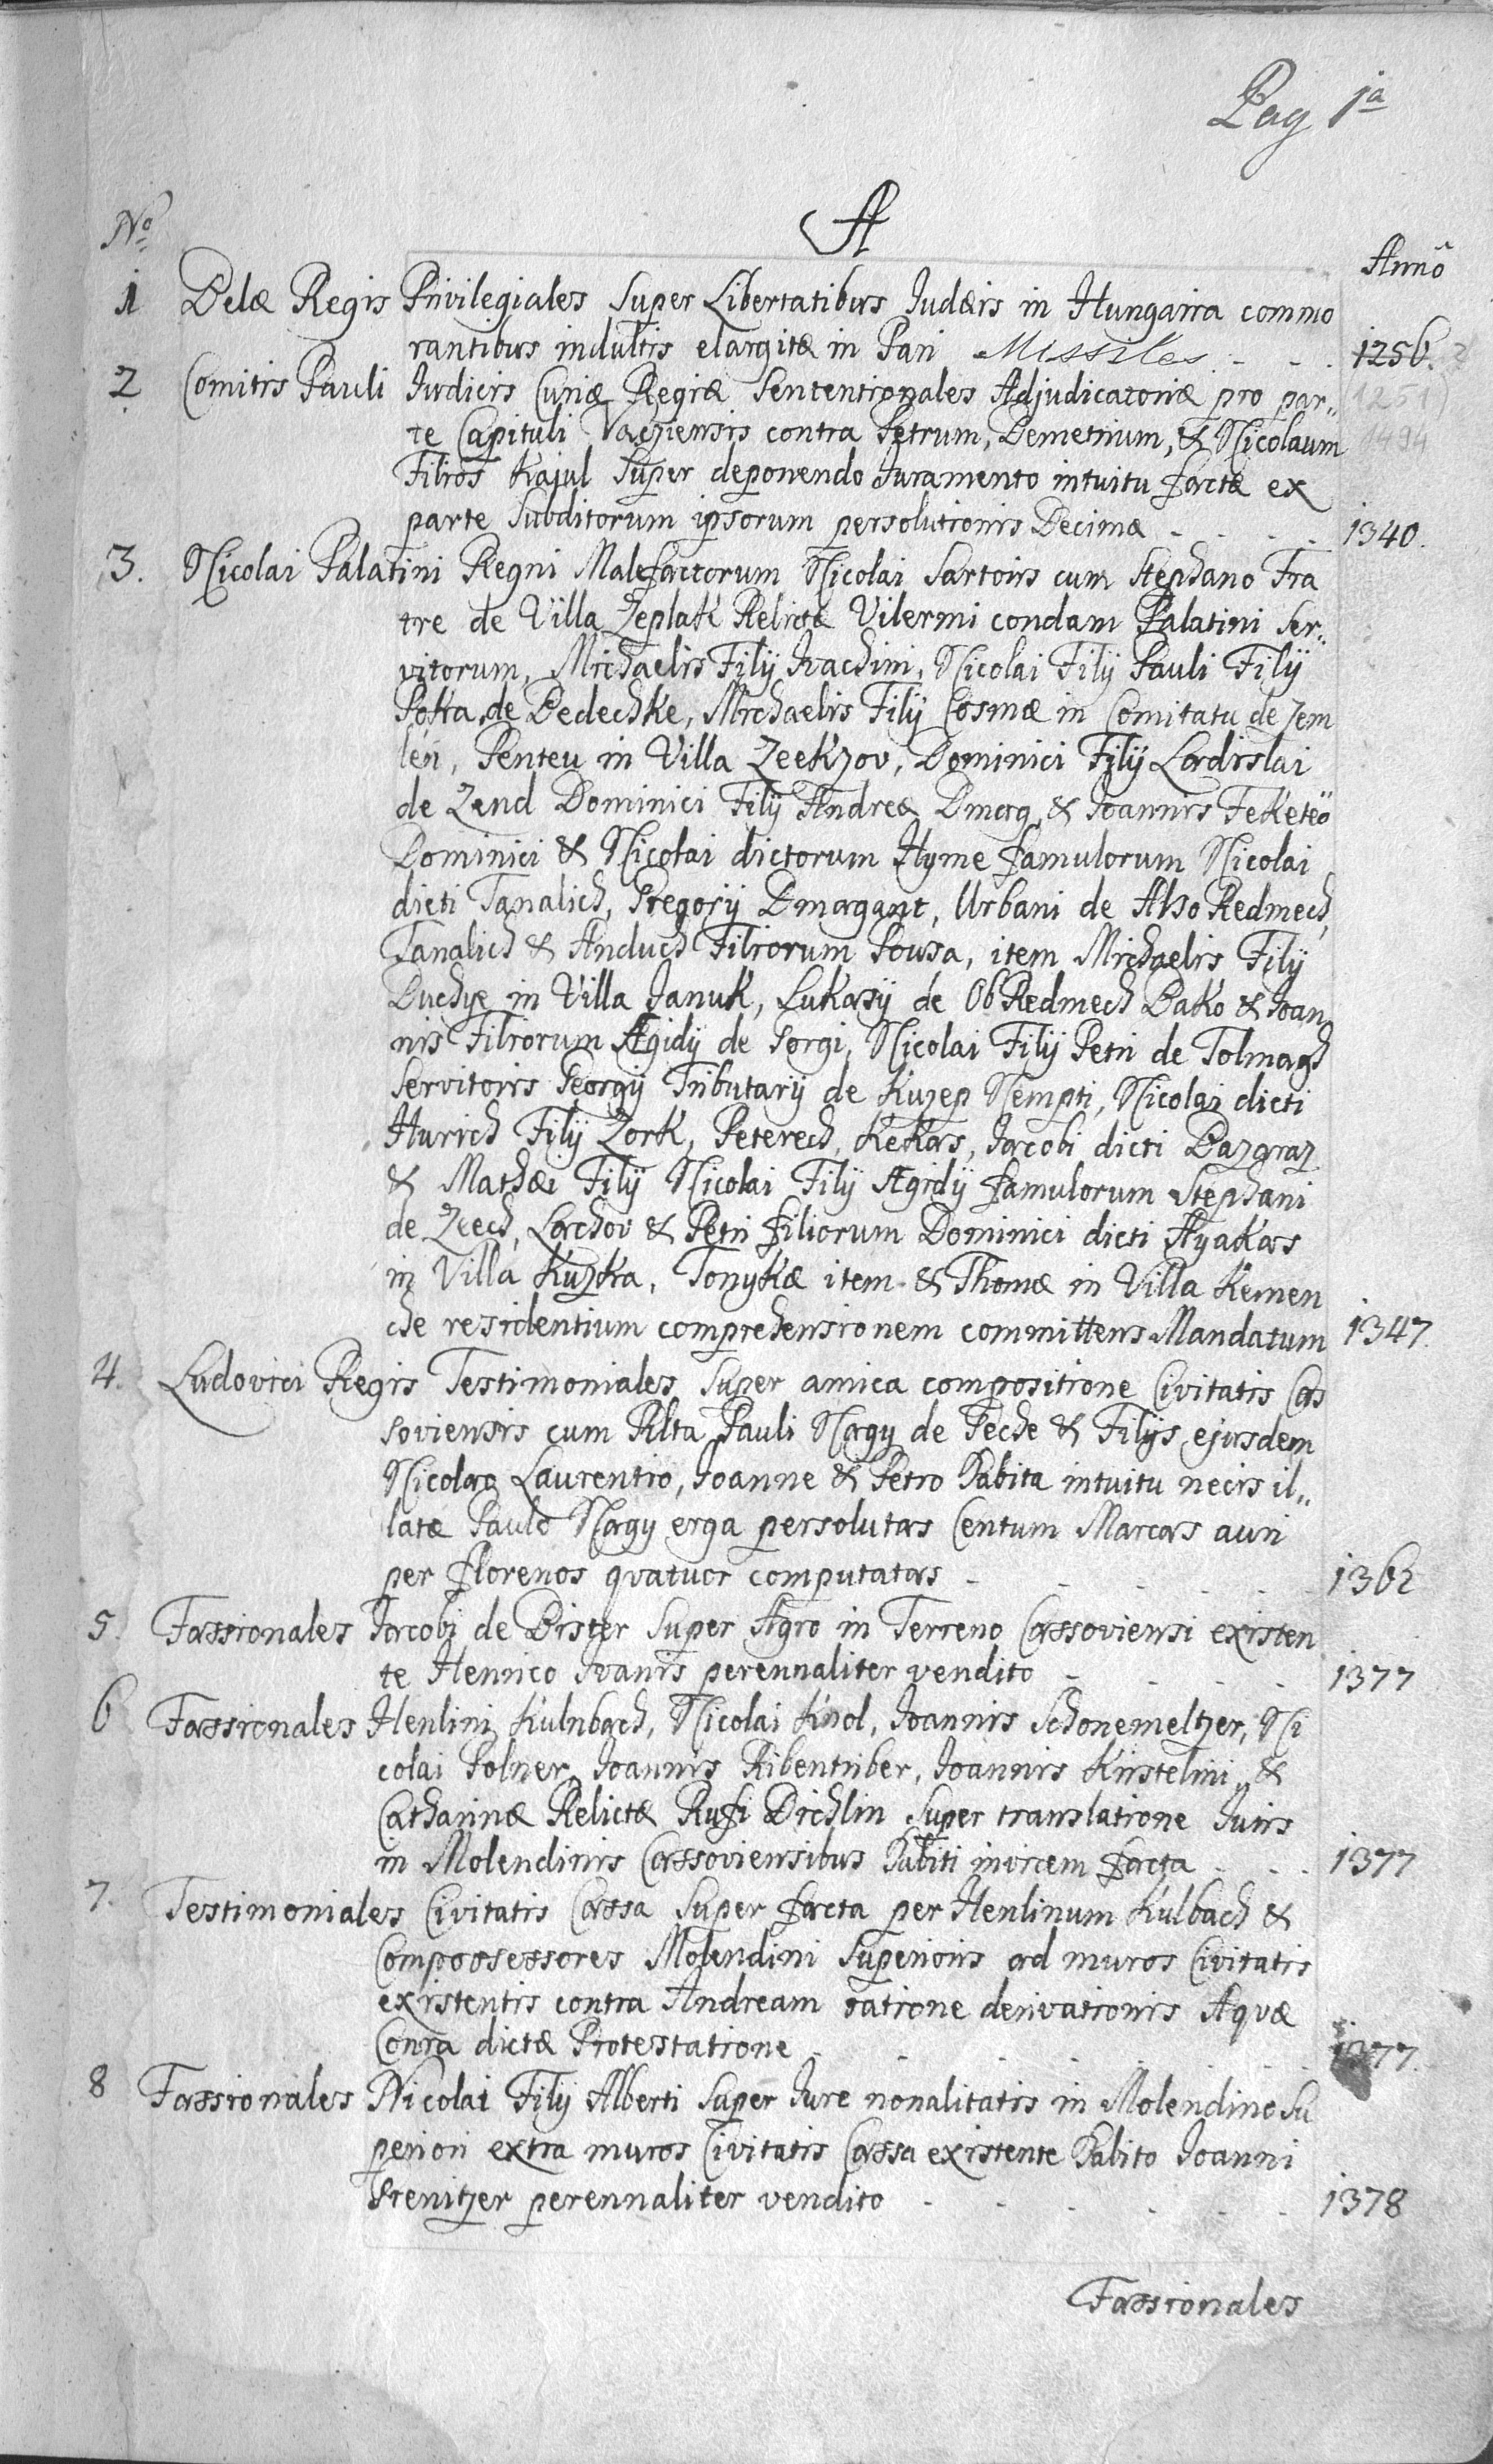 Pag 1a
A
No
Anno
1 Belæ Regis Privilegiales Super Libertatibus Judæis in Hungaria commo
rantibus indultis elargitæ in Pari Missiles - - . 1256.
2 Comitis Pauli Judicis Curiæ Regiæ Sententionales Adjudicatoriæ pro par„ (1251)
te Capituli Vacziensis contra Petrum, Demetrium, & Nicolaum 1494
Filios Kajul Super deponendo Juramento intuitu factæ ex
parte Subditorum ipsorum persolutionis Decimæ - . . . 1340.
3. Nicolai Palatini Regni Malefactorum Nicolai Sartoris cum Stephano Fra
tre de Villa Zeplak Relictæ Vilermi condam Palatini Ser„
vitorum, Michaelis Filij Ivachini, Nicolai Filij Pauli Filij
Potka, de Bedechke, Michaelis Filij Cosmæ in Comitatu de Zem
lén, Penteu in Villa Zeekzov, Dominici Filij Ladislai
de Zend Dominici Filij Andreæ Dmag, & Joannis Feketeö
Dominici & Nicolai dictorum Hyme famulorum Nicolai
dicti Tanalich, Gregorij Dmagant, Urbani de Also Redmech,
Tanalich & Anduch Filiorum Pousa, item Michaelis Filij
Duchye in Villa Januk, Lukasij de Ob Redmech Bako & Joan
nis Filiorum Ægidij de Sorgi, Nicolai Filij Petri de Tolmach
Servitoris Georgij Tributarij de Kuzep Nempti, Nicolai dicti
Hurich Filij Zork, Peterech, Kekas, Jacobi dicti Bazaraz
& Mathæi Filij Nicolai Filij Ægidij famulorum Stephani
de Zeech, Lachov & Petri filiorum Dominici dicti Nyakas
in Villa Kuzka, Tonykæ item & Thomæ in Villa Kemen
che residentium comprehensionem committens Mandatum 1347.
4. Ludovici Regis Testimoniales Super amica compositione Civitatis Cas
soviensis cum Rlta Pauli Nagy de Peche & Filijs ejusdem
Nicolao Laurentio, Joanne & Petro habita intuitu necis il„
latæ Paulo Nagy erga persolutas Centum Marcas auri
per florenos quatuor computatas - . . . . 1362
5. Fassionales Jacobi de Bister Super Agro in Terreno Cassoviensi existen
te Henrico Ivanis perennaliter vendito - . . . 1377
6 Fassionales Henlini Kulnbach, Nicolai Knol, Joannis Schonemeltzer, Ni
colai Polner, Joannis Ribentriber, Joannis Kirstelini, &
Catharinæ Relictæ Rufi Dichlin Super translatione Juris
in Molendinis Cassoviensibus habiti invicem facta . . . 1377
7. Testimoniales Civitatis Cassa Super facta per Henlinum Kulbach &
Compossessores Molendini Superioris ad muros Civitatis
existentis contra Andream ratione derivationis Aquæ
Contra dictæ Protestatione . . . . . 1377.
8 Fassionales Nicolai Filij Alberti Super Jure nonalitatis in Molendino Su
periori extra muros Civitatis Cassa existente habito Joanni
Stenitzer perennaliter vendito - - . . . . 1378
Fassionales